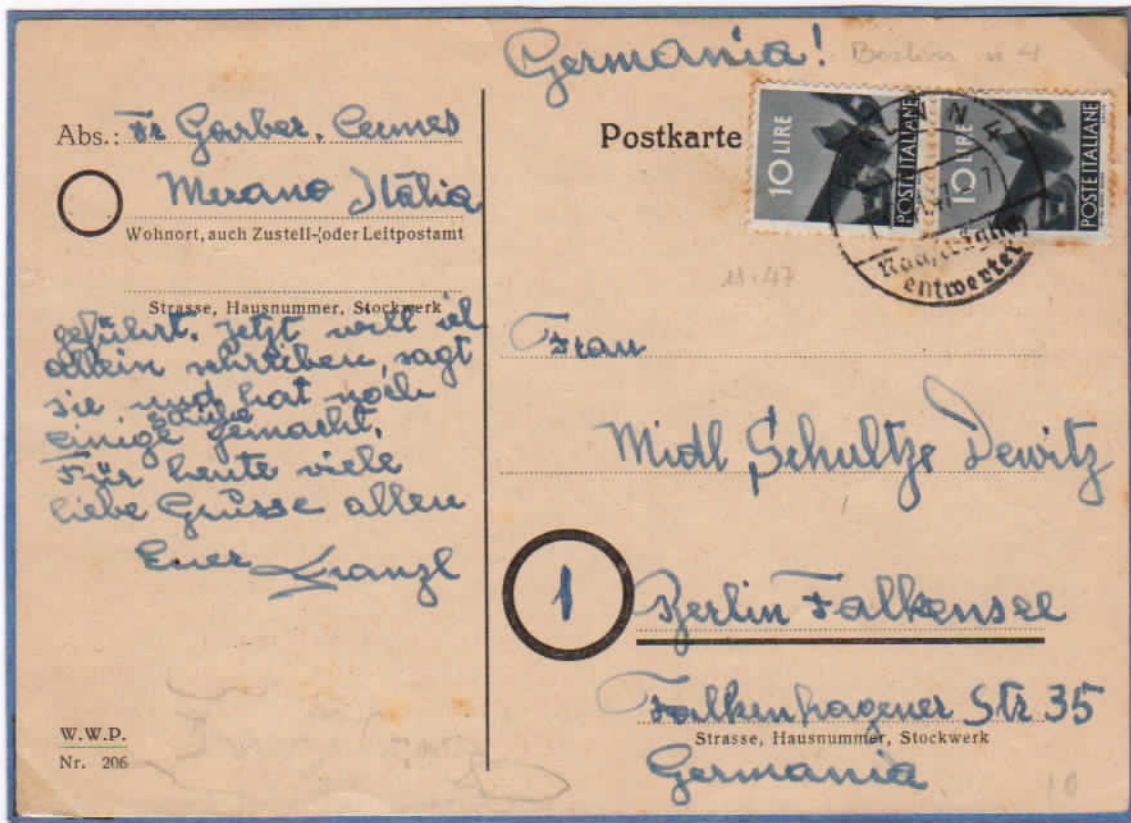 Germania!
Berlin n 4
Abs.: Fr Garber. Cermes
Merano Italia
Wohnort, auch Zustell- oder Leitpostamt
Strasse, Hausnummer, Stockwerk
geführt. Jetzt will ich
allein schreiben, sagt
sie und hat noch
einige gemacht.
Für heute viele
liebe Grüsse allen
Euer Franzl
W.W.P.
Nr. 206
Postkarte
10 LIRE
POSTE ITALIANE
10 LIRE
POSTE ITALIANE
entwertet
11.47
Frau
Midl Schultze Dewitz
1
Berlin Falkensee
Falkenhagener Str. 35
Strasse, Hausnummer, Stockwerk
Germania
10